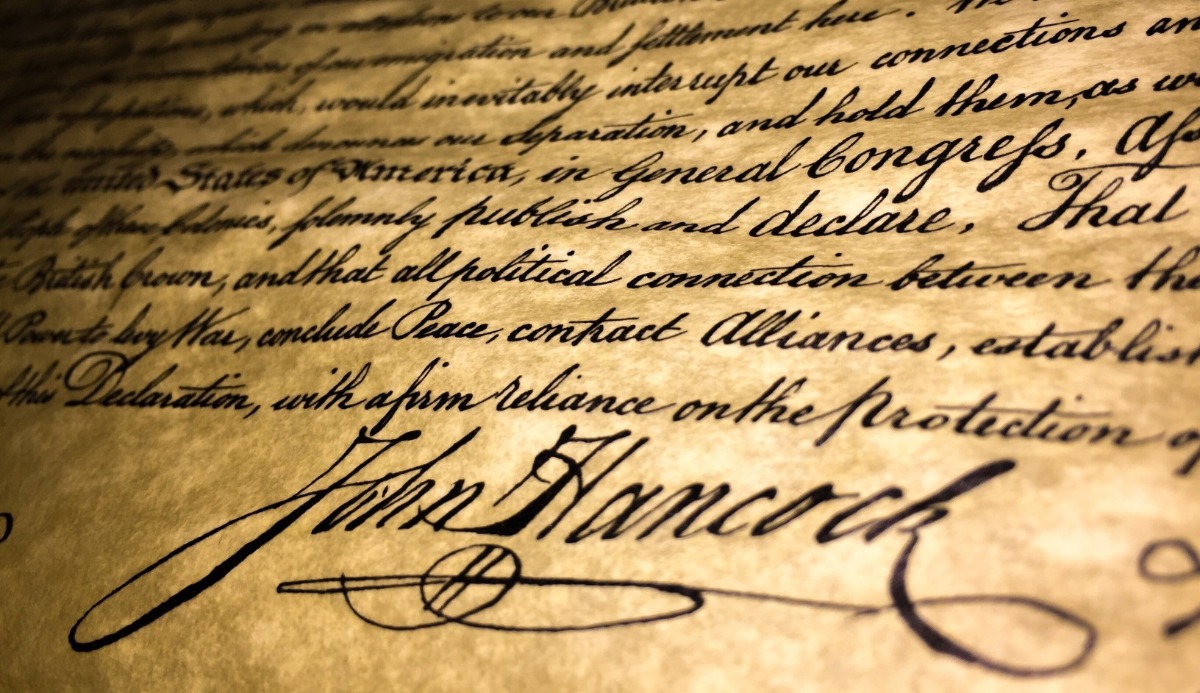 to our British
emigration and settlement here. We
which, would inevitably interrupt our connections an
denounces our Separation, and hold them, as we
united States of America, in General Congress, Ass
of these Colonies, solemnly publish and declare, That
British Crown, and that all political connection between the
Power to levy War, conclude Peace, contract Alliances, establish
of this Declaration, with a firm reliance on the Protection of
John Hancock